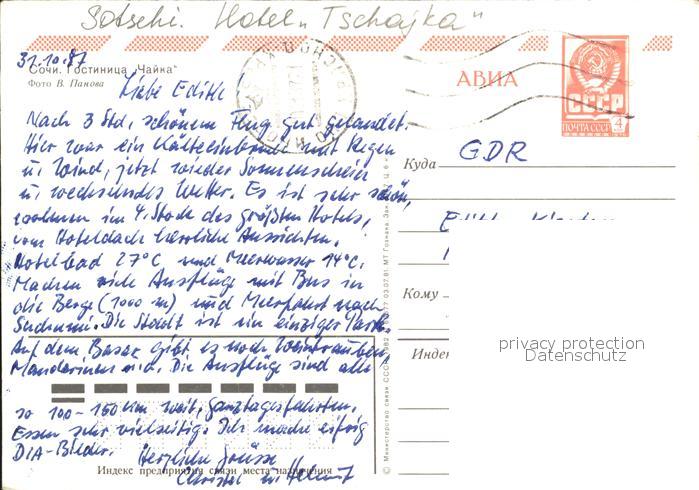 Sotschi. Hotel „Tschajka“
31.10.87
Сочи. Гостиница "Чайка"
Фото В. Панова
АВИА
СССР
ПОЧТА СССР 4
Liebe Edith!
Nach 3 Std. schönem Flug gut gelandet.
Hier war ein Kälteeinbruch mit Regen
u. Wind, jetzt wieder Sonnenschein
u. wechselndes Wetter. Es ist sehr schön,
wohnen im 4. Stock des größten Hotels,
vom Hoteldach herrliche Aussichten.
Hotelbad 27°C und Meerwasser 14°C.
Machen viele Ausflüge mit Bus in
die Berge (1000 m) und Meerfahrt nach
Suchumi. Die Stadt ist ein einziger Park.
Auf dem Basar gibt es noch Weintrauben,
Mandarinen. Die Ausflüge sind alle
so 100-150 km weit, Ganztagesfahrten,
Essen sehr vielseitig. Ich mache eifrig
DIA-Bilder.
Herzliche Grüsse
Christel u. Helmut
Куда
GDR
Кому
Индекс
privacy protection
Datenschutz
Индекс предприятия связи места назначения
© Министерство связи СССР